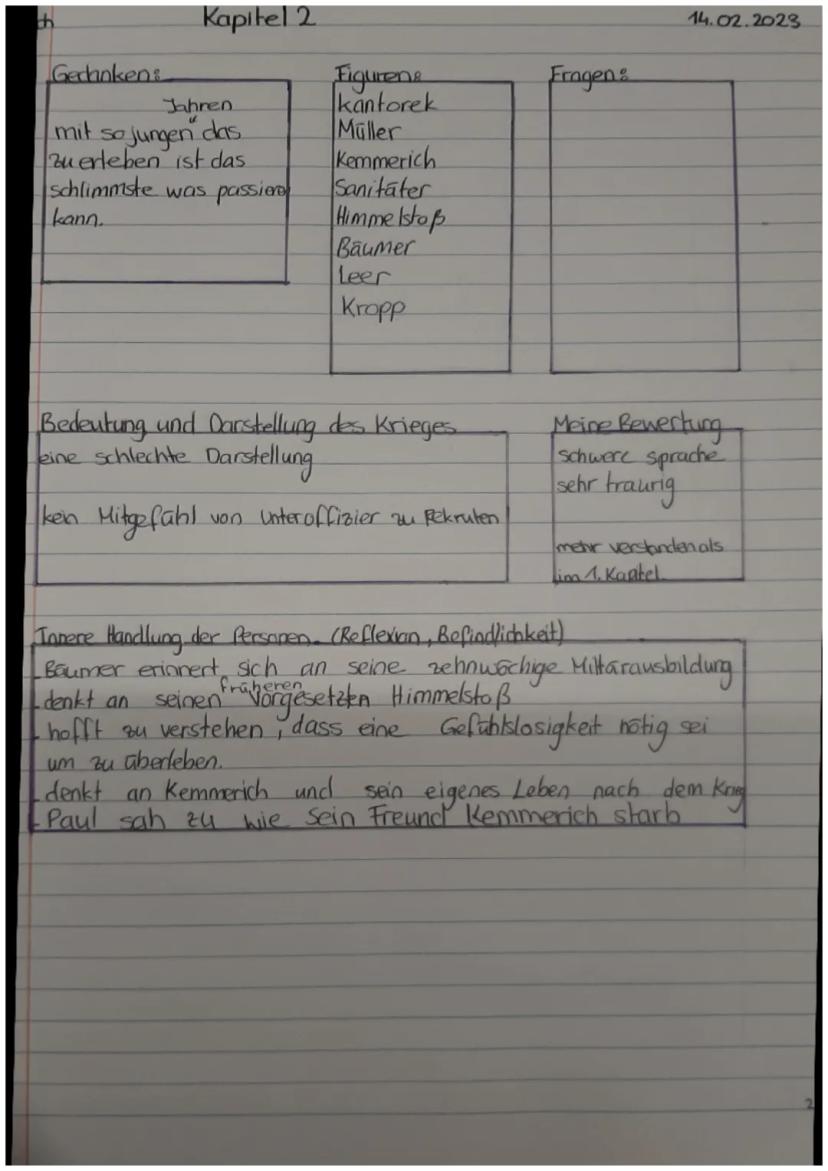 ch
Kapitel 2
14.02.2023
Gedanken:
Jahren
mit so jungen das
zu erleben ist das
schlimmste was passieren
kann.
Figuren:
Kantorek
Müller
Kemmerich
Sanitäter
Himmelstoß
Bäumer
Leer
Kropp
Fragen:
Bedeutung und Darstellung des Krieges
eine schlechte Darstellung
kein Mitgefühl von Unteroffizier zu Rekruten
Meine Bewertung
schwere sprache
sehr traurig
mehr verstanden als
im 1. Kapitel
Innere Handlung der Personen (Reflexion, Befindlichkeit)
- Bäumer erinnert sich an seine zehnwöchige Militärausbildung
- denkt an seinen früheren Vorgesetzten Himmelstoß
- hofft zu verstehen, dass eine Gefühlslosigkeit nötig sei
um zu überleben.
- denkt an Kemmerich und sein eigenes Leben nach dem Krieg
- Paul sah zu wie sein Freund Kemmerich starb
2